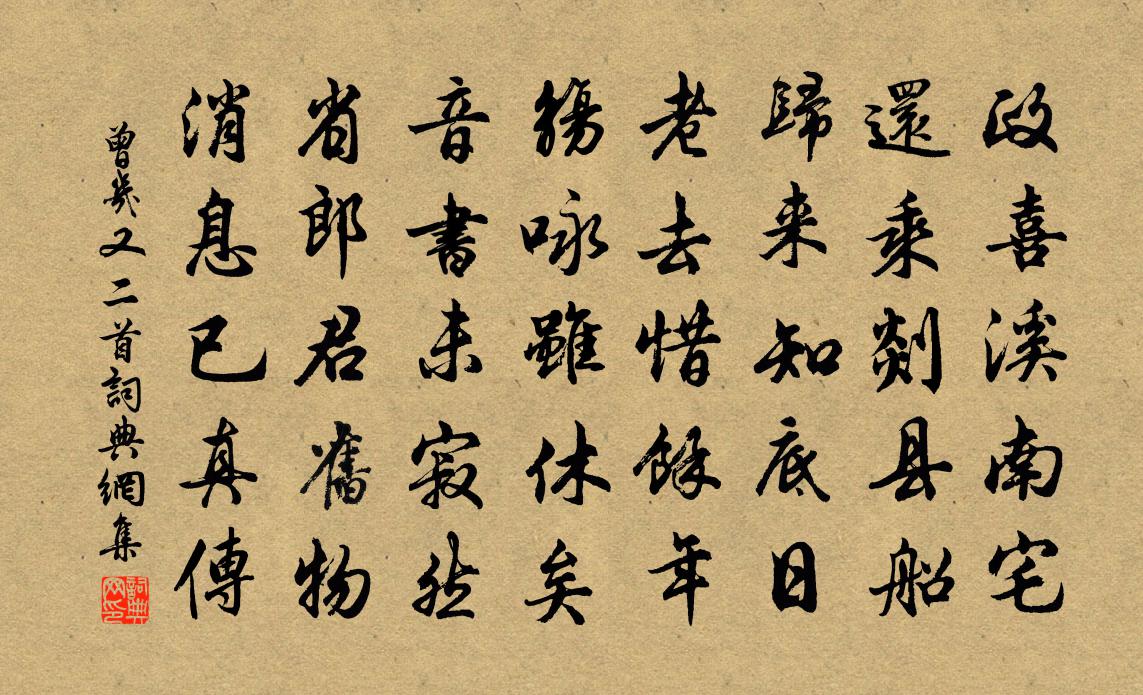 政喜溪南宅
還乘剡县船
歸来知底日
老去惜餘年
觴咏雖休矣
音書未寂然
省郎君舊物
消息已真傳
曾幾又二首詞典網集
詞典网印